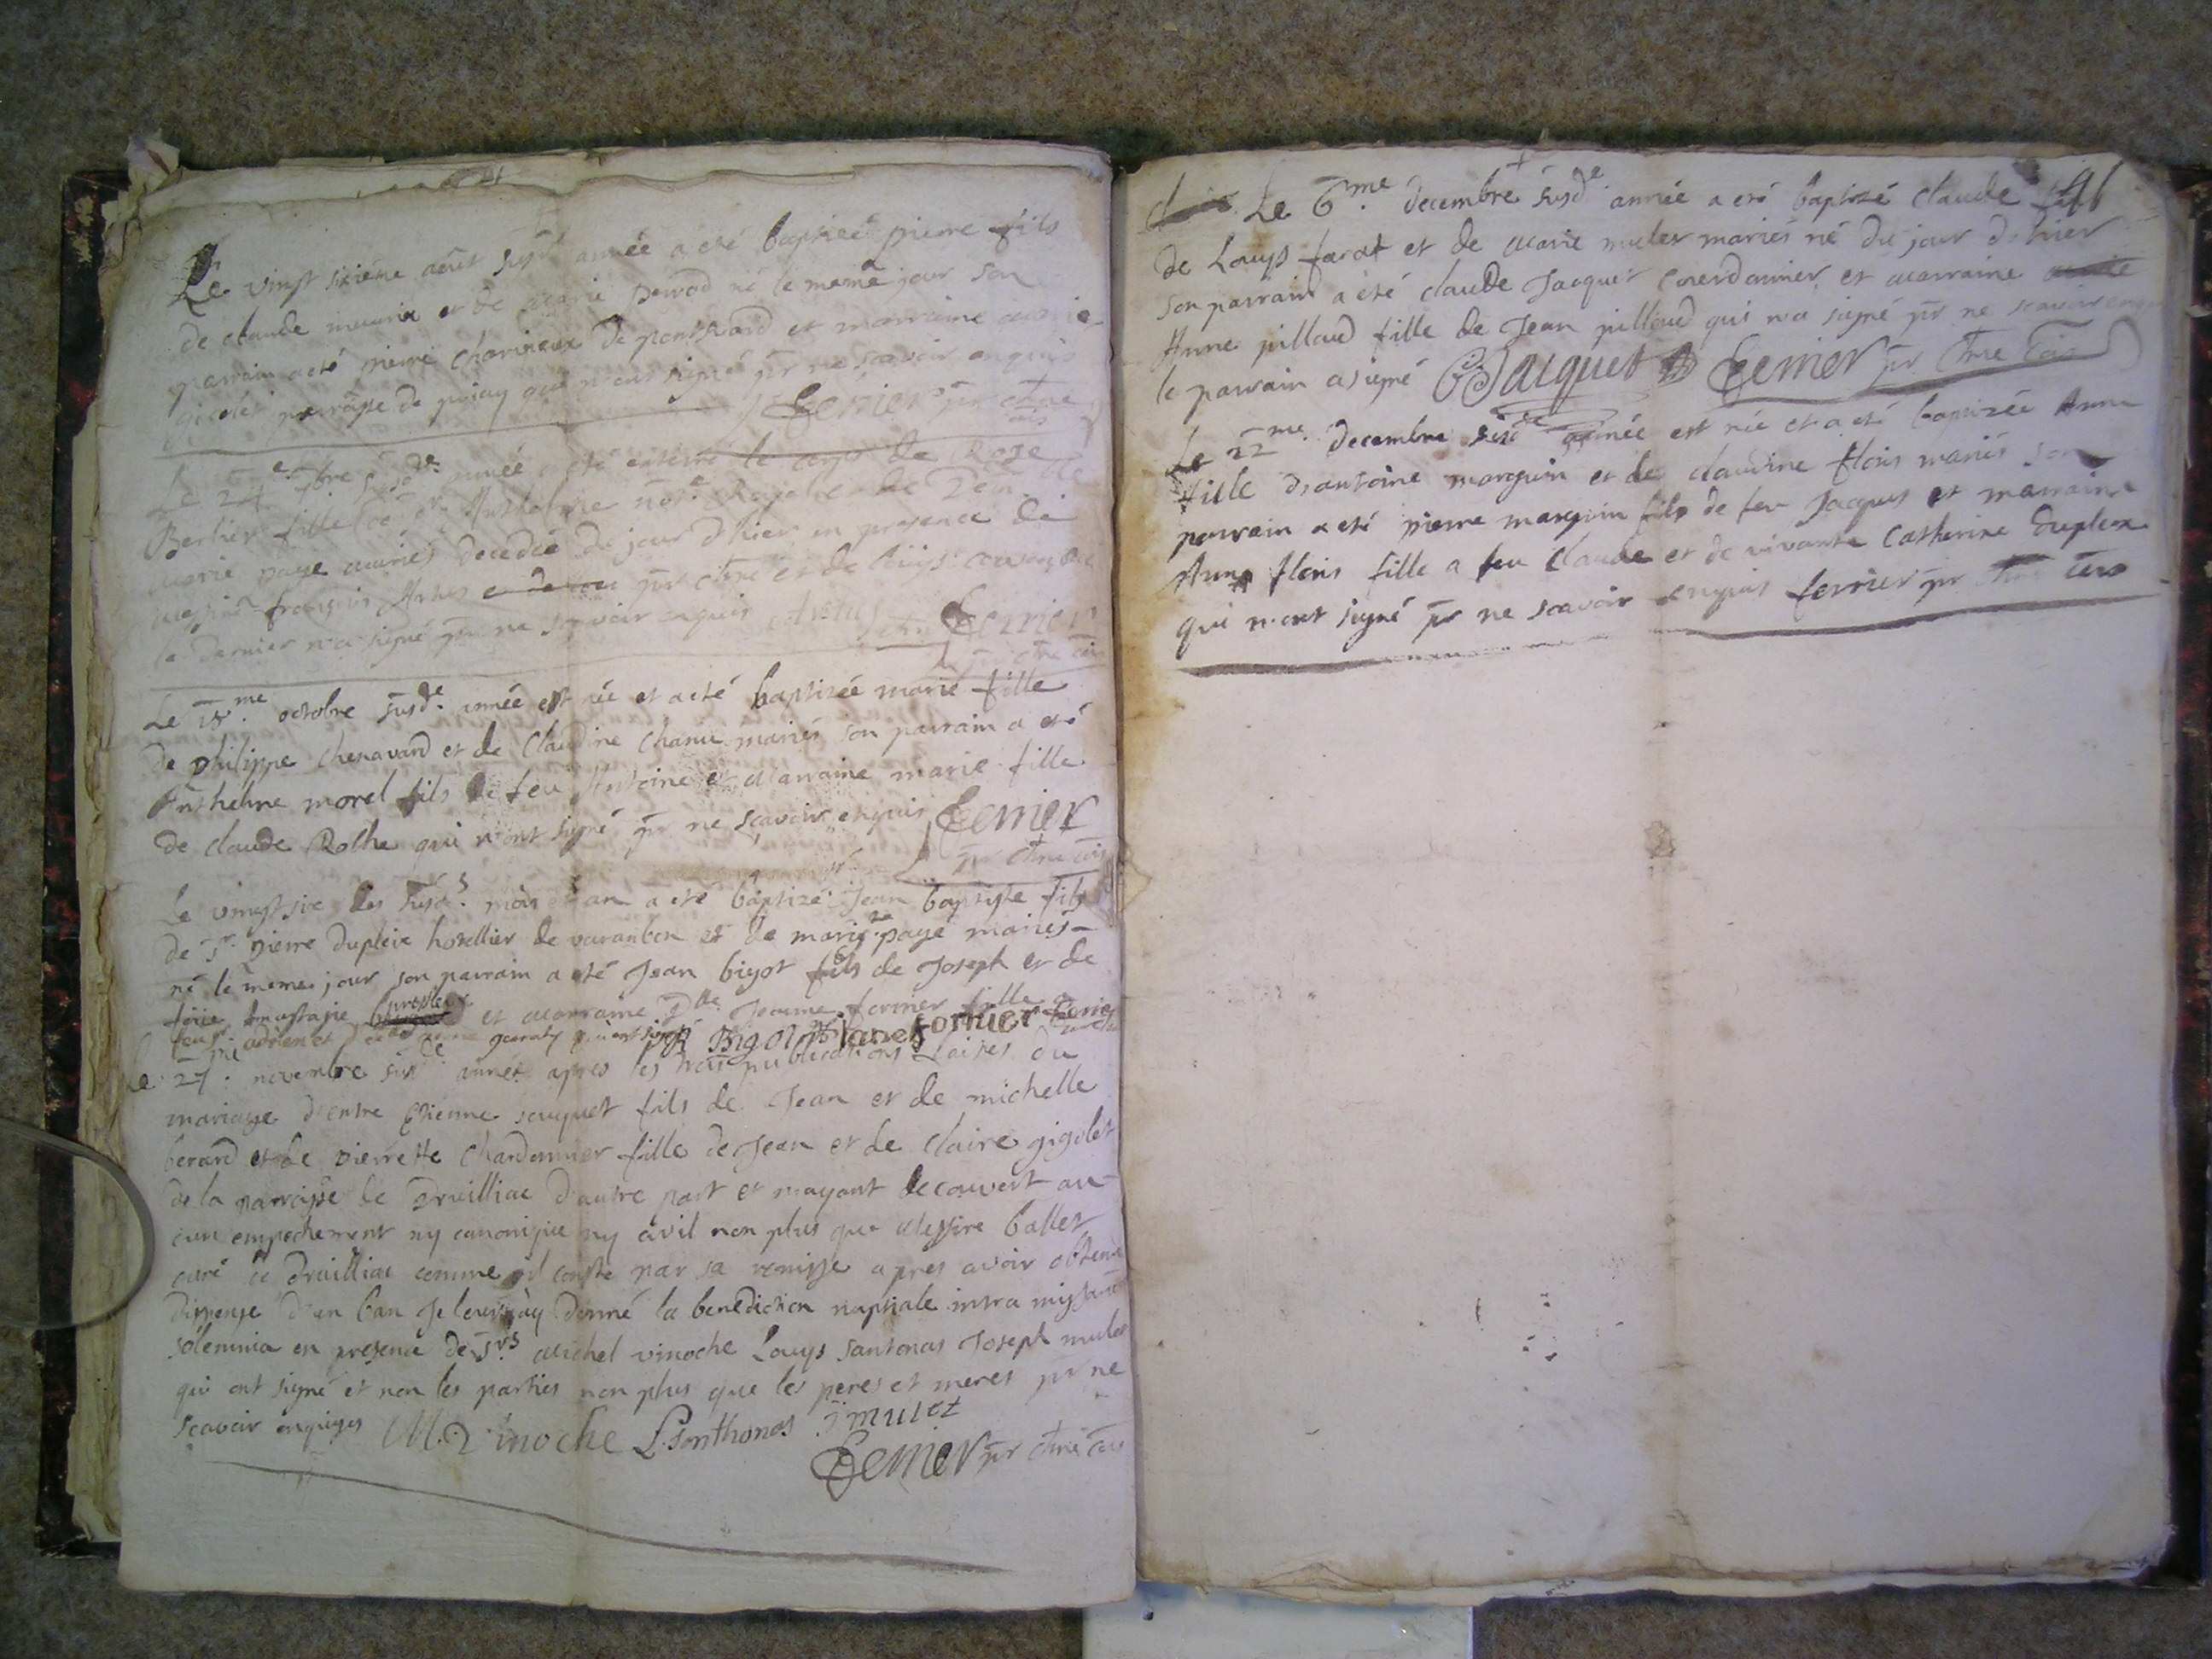 Le vingt sixiéme aout susd. année a eté baptisé pierre fils
de claude et de marie perrod né le meme jour son
parrain a eté pierre de pontnard et marraine marie
gigolet parroisse de qui n'ont signé pr ne scavoir enquis
ferrier pr
Le 24e 7bre susde. année a eté enterré le corps de Roze
Berlier fille de sr Anthelme note Royal et de delle
marie paye mariés decedée du jour d'hier en presence de
françois Arthus et de
le dernier n'a signé pr ne scavoir enquis ferrier
Le 18me. octobre susde. année est née et a eté baptizée marie fille
de philippe chenavard et de Claudine mariés son parrain a eté
Anthelme morel fils de feu Antoine et marraine marie fille
de claude Rolhe qui n'ont signé pr ne scavoir enquis ferrier
Le vingt six des susds. mois et an a eté baptizé Jean baptiste fils
de sr. pierre dupleix hotellier de varanbon et de marie paye mariés
né le meme jour son parrain a eté Jean bigot fils de Joseph et de
et marraine dlle Jeanne fornier fille
qui ont signé Bigot fornier ferrier
Le 27. novembre susde année apres les trois publications faites du
mariage d'entre Etienne Jauquet fils de Jean et de michelle
berard et de pierrette Chardonnier fille de Jean et de claire gigolet
de la parroisse de Druilliac d'autre part et n'ayant decouvert au
cun empechement ny canonique ny civil non plus que messire ballet
curé de druilliac comme il conste par sa remisse apres avoir obtenu
dispense d'un ban Je leur ay donné la benediction nuptiale intra missarum
solemnia en presence de srs michel vinoche Louys Santonas Joseph mulet
qui ont signé et non les parties non plus que les peres et meres pr ne
scavoir enquises M. Vinoche L. Sonthonas J mulet
ferrier pr

41
Le 6me. decembre susde. année a eté baptizé claude fils
de Louys farat et de marie mulet mariés né du jour d'hier
son parrain a eté claude Jacquet Coerdonnier et marraine
Anne pillaud fille de Jean pillaud qui n'a signé pr ne scavoir enquis
le parrain a signé C Jacquet ferrier pr
Le 22me. decembre susde année est née et a eté baptizée Anne
fille d'antoine marguin et de claudine floris mariés son
parrain a eté pierre marguin fils de feu Jacques et marraine
Anne floris fille a feu Claude et de vivante Catherine dupleix
qui n'ont signé pr ne scavoir enquis ferrier pr